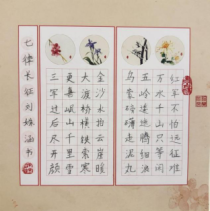 红军不怕远征难
万水千山只等闲
五岭逶迤腾细浪
乌蒙磅礴走泥丸
金沙水拍云崖暖
大渡桥横铁索寒
更喜岷山千里雪
三军过后尽开颜
七律长征刘
书